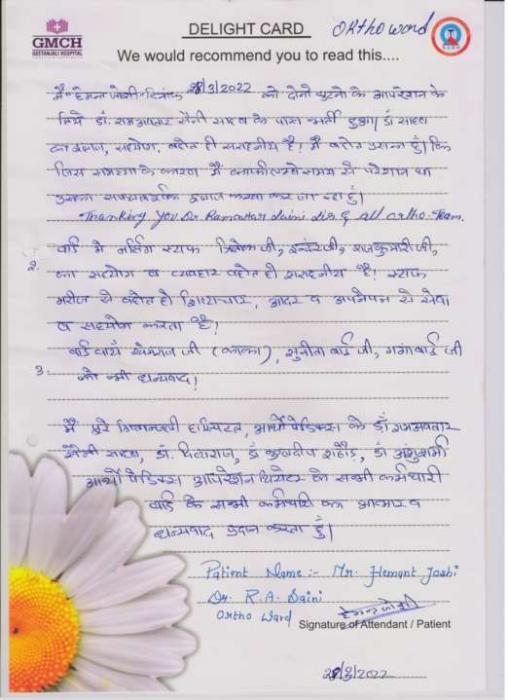 GMCH
GEETANJALI HOSPITAL
DELIGHT CARD
Ortho word
We would recommend you to read this....
मैं हेमन्त जोशी दिनांक 28/3/2022 को दोनो घुटनो के आपरेशन के
लिये डॉ. रामअवतार सैनी साहब के पास भर्ती हुआ। डॉ साहब
का इलाज, सहयोग, बहोत ही सराहनीय है! मैं बहोत प्रसन्न हूँ। कि
जिस समस्या के कारण मैं काफी लम्बे समय से परेशान था
उसका सफलतापूर्वक इलाज करवा कर जा रहा हूँ।
Thanking you Dr Ramavtar Saini sir & all ortho. Team.
2. वार्ड मे नर्सिंग स्टाफ विवेक जी, इन्दर जी, राजकुमारी जी,
का सहयोग व व्यवहार बहोत ही सराहनीय है! स्टाफ
मरीज से बहोत ही शिष्टाचार, आदर व अपनेपन से सेवा
व सहयोग करता है!
3. वार्ड बाय खेमराज जी (काका), सुनीता बाई जी, गंगा बाई जी
को भी धन्यवाद!
मैं पुरे गितान्जली हॉस्पिटल, आर्थोपेडिक्स के डॉ रामअवतार
सैनी साहब, डॉ. कुलदीप राठौड़, डॉ अंशु शर्मा
आर्थोपेडिक्स आपरेशन थियेटर के सभी कर्मचारी
वार्ड के सभी कर्मचारी का आभार व
धन्यवाद प्रदान करता हूँ।
Patient Name:- Mr. Hemant Joshi
Dr. R.A. Saini
Ortho Ward
हेमन्त जोशी
Signature of Attendant / Patient
28/3/2022